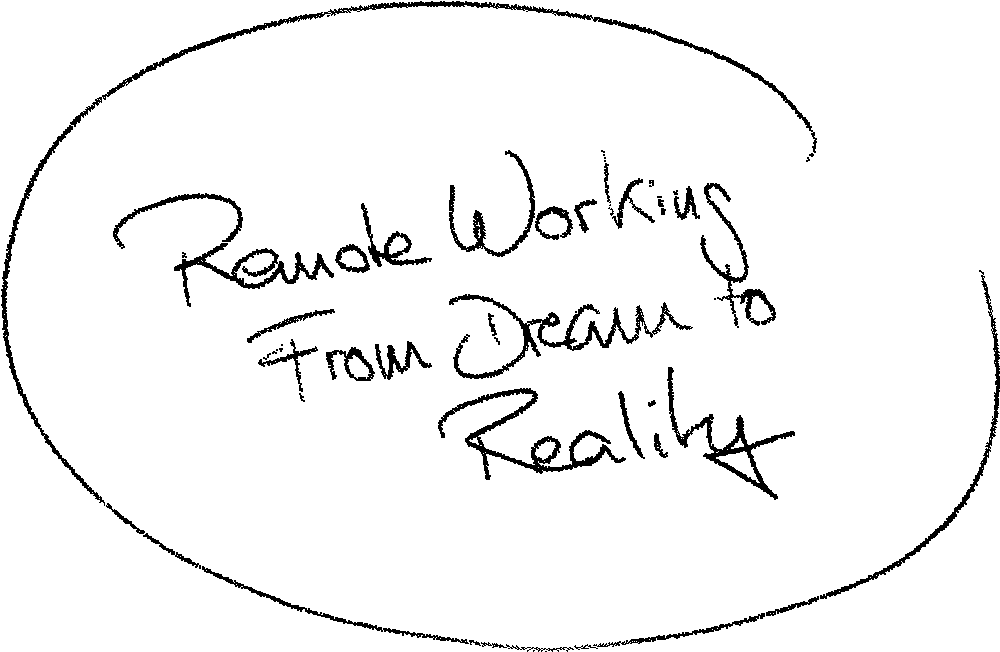 Remote Working
From Dream to
Reality